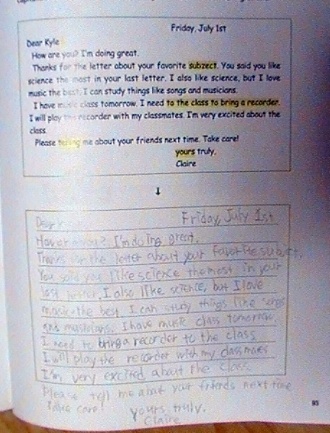 Friday, July 1st
Dear Kyle
How are you? I'm doing great.
Thanks for the letter about your favorite subzect. You said you like
science the most in your last letter. I also like science, but I love
music the best. I can study things like songs and musicians.
I have music class tomorrow. I need to the class to bring a recorder.
I will play the recorder with my classmates. I'm very excited about the
class.
Please me about your friends next time. Take care!
yours truly,
Claire
↓
Dear Friday, July 1st
How are you? I'm doing great.
Thanks for the letter about your favorite
You said you like science the most in your
last letter, I also like science, but I love
music the best. I can study things like songs
and musicians. I have music class tomorrow
I need to bring a recorder to the class
I will play the recorder with my classmates
I'm very excited about the class
Please tell me about your friends next time
Take care!
Yours truly,
Claire